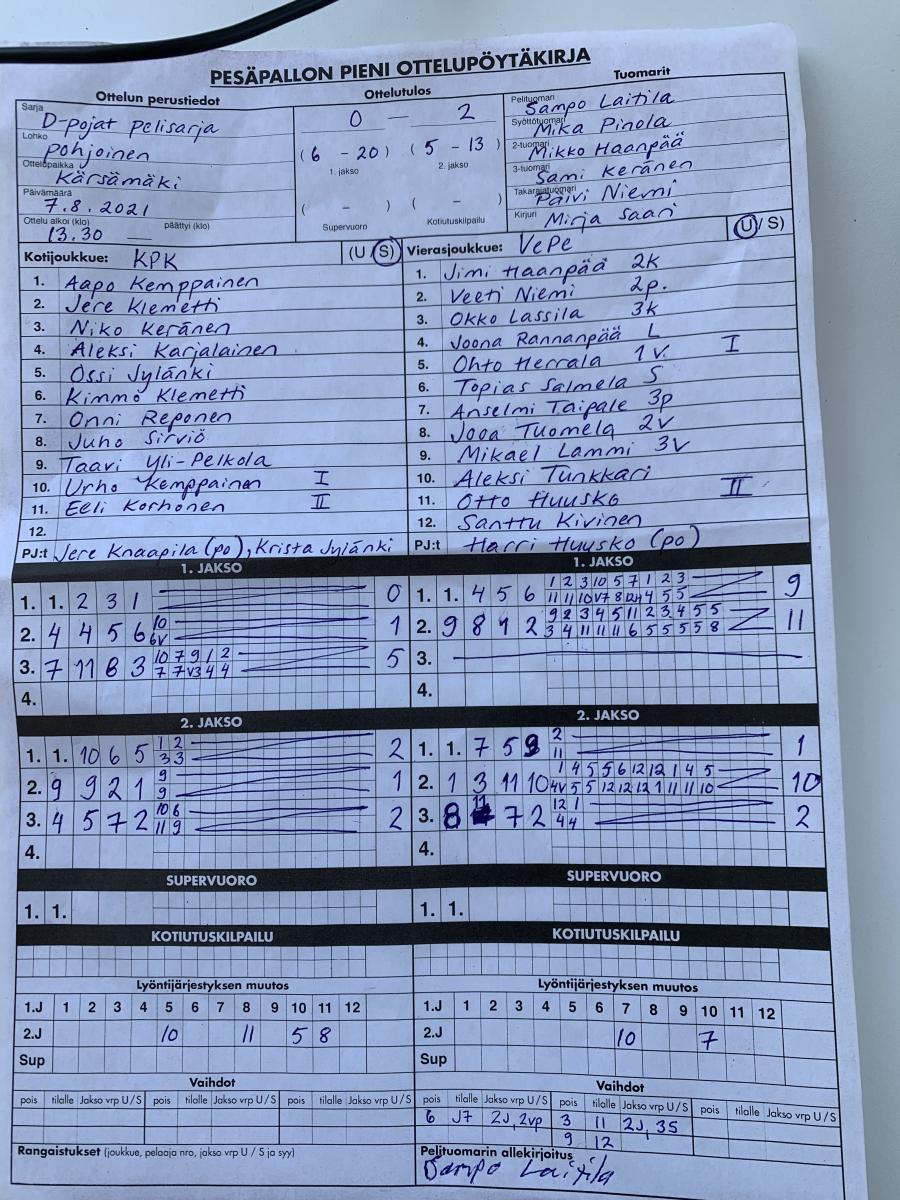 PESÄPALLON PIENI OTTELUPÖYTÄKIRJA
Ottelun perustiedot
Sarja
D-pojat pelisarja
Lohko
Pohjoinen
Ottelupaikka
Kärsämäki
Päivämäärä
7.8.2021
Ottelu alkoi (klo) päättyi (klo)
13.30
Ottelutulos
0 — 2
(6 - 20) (5 - 13)
1. jakso 2. jakso
( - ) ( - )
Supervuoro Kotiutuskilpailu
Tuomarit
Pelituomari
Sampo Laitila
Syöttötuomari
Mika Pinola
2-tuomari
Mikko Haanpää
3-tuomari
Sami Keränen
Takarajatuomari
Päivi Niemi
Kirjuri
Mirja Saari
Kotijoukkue: KPK (U/S)
1. Aapo Kemppainen
2. Jere Klemetti
3. Niko Keränen
4. Aleksi Karjalainen
5. Ossi Jylänki
6. Kimmo Klemetti
7. Onni Reponen
8. Juho Sirviö
9. Taavi Yli-Pelkola
10. Urho Kemppainen I
11. Eeli Korhonen II
12.
PJ:t Jere Knaapila (po), Krista Jylänki
Vierasjoukkue: VePe (U/S)
1. Jimi Haanpää 2k
2. Veeti Niemi 2p.
3. Okko Lassila 3k
4. Joona Rannanpää L
5. Ohto Herrala 1v. I
6. Topias Salmela S
7. Anselmi Taipale 3p
8. Jooa Tuomela 2v
9. Mikael Lammi 3v
10. Aleksi Tunkkari
11. Otto Huusko II
12. Santtu Kivinen
PJ:t Harri Huusko (po)
1. JAKSO
1. 1. 2 3 1 0
2. 4 4 5 6 10 1
6v
3. 7 11 8 3 10 7 9 1 2 5
7 7 v3 4 4
4.
1. JAKSO
1. 1. 4 5 6 1 2 3 10 5 7 1 2 3 9
2. 9 8 1 2 9 2 3 4 5 11 2 3 4 5 5 11
3 4 11 11 11 6 5 5 5 5 8
3.
4.
2. JAKSO
1. 1. 10 6 5 1 2 2
3 3
2. 9 9 2 1 9 1
9
3. 4 5 7 2 10 6 2
11 9
4.
2. JAKSO
1. 1. 7 5 9 2 1
11
2. 1 3 11 10 1 4 5 5 6 12 12 1 4 5 10
4v 5 5 12 12 12 1 11 11 10
3. 8 11 7 2 12 1 2
4 4
4.
SUPERVUORO
1. 1.
SUPERVUORO
1. 1.
KOTIUTUSKILPAILU
KOTIUTUSKILPAILU
Lyöntijärjestyksen muutos
1.J 1 2 3 4 5 6 7 8 9 10 11 12
2.J 10 11 5 8
Sup
Lyöntijärjestyksen muutos
1.J 1 2 3 4 5 6 7 8 9 10 11 12
2.J 10 7
Sup
Vaihdot
pois tilalle Jakso vrp U/S pois tilalle Jakso vrp U/S pois tilalle Jakso vrp U/S
Vaihdot
pois tilalle Jakso vrp U/S pois tilalle Jakso vrp U/S pois tilalle Jakso vrp U/S
6 J7 2J, 2vp 3 11 2J, 3S
9 12
Rangaistukset (joukkue, pelaaja nro, jakso vrp U / S ja syy)
Pelituomarin allekirjoitus
Sampo Laitila